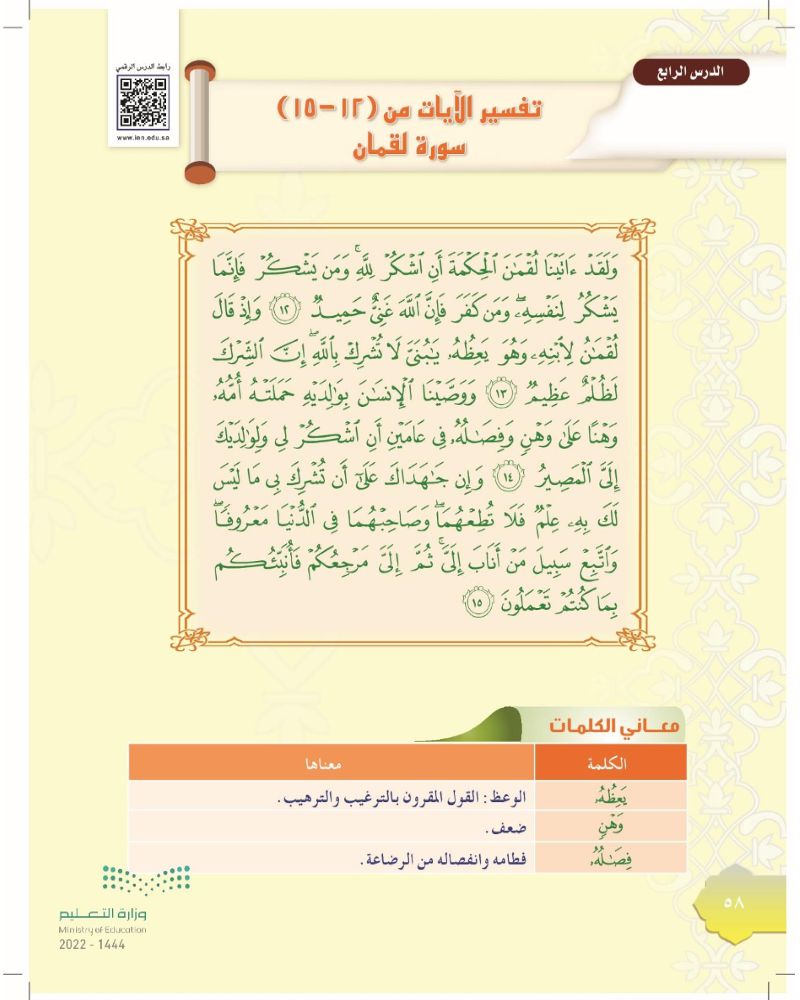 الدرس الرابع
رابط الدرس الرقمي
www.ien.edu.sa
تفسير الآيات من (١٢-١٥)
سورة لقمان
وَلَقَدۡ ءَاتَيۡنَا لُقۡمَٰنَ ٱلۡحِكۡمَةَ أَنِ ٱشۡكُرۡ لِلَّهِۚ وَمَن يَشۡكُرۡ فَإِنَّمَا
يَشۡكُرُ لِنَفۡسِهِۦۖ وَمَن كَفَرَ فَإِنَّ ٱللَّهَ غَنِيٌّ حَمِيدٞ ١٢ وَإِذۡ قَالَ
لُقۡمَٰنُ لِٱبۡنِهِۦ وَهُوَ يَعِظُهُۥ يَٰبُنَيَّ لَا تُشۡرِكۡ بِٱللَّهِۖ إِنَّ ٱلشِّرۡكَ
لَظُلۡمٌ عَظِيمٞ ١٣ وَوَصَّيۡنَا ٱلۡإِنسَٰنَ بِوَٰلِدَيۡهِ حَمَلَتۡهُ أُمُّهُۥ
وَهۡنًا عَلَىٰ وَهۡنٖ وَفِصَٰلُهُۥ فِي عَامَيۡنِ أَنِ ٱشۡكُرۡ لِي وَلِوَٰلِدَيۡكَ
إِلَيَّ ٱلۡمَصِيرُ ١٤ وَإِن جَٰهَدَاكَ عَلَىٰٓ أَن تُشۡرِكَ بِي مَا لَيۡسَ
لَكَ بِهِۦ عِلۡمٞ فَلَا تُطِعۡهُمَاۖ وَصَاحِبۡهُمَا فِي ٱلدُّنۡيَا مَعۡرُوفٗاۖ
وَٱتَّبِعۡ سَبِيلَ مَنۡ أَنَابَ إِلَيَّۚ ثُمَّ إِلَيَّ مَرۡجِعُكُمۡ فَأُنَبِّئُكُم
بِمَا كُنتُمۡ تَعۡمَلُونَ ١٥
معاني الكلمات
الكلمة معناها
يَعِظُهُۥ الوعظ: القول المقرون بالترغيب والترهيب.
وَهۡنٖ ضعف.
فِصَٰلُهُۥ فطامه وانفصاله من الرضاعة.
وزارة التعليم
Ministry of Education
2022 - 1444
٥٨